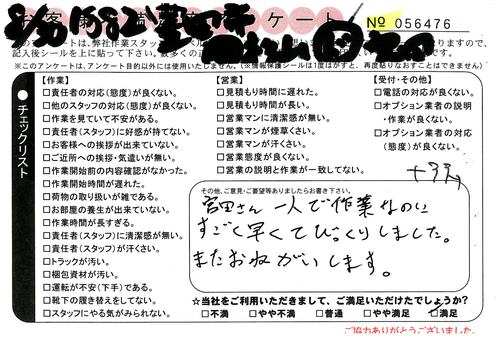 お客様 アンケート No 056476
※このアンケートは、アンケート目的以外には使用いたしません。(※情報保護シールは1度はがすと、再度貼りなおすことはできません)
チェックリスト
【作業】
□責任者の対応(態度)が良くない。
□他のスタッフの対応(態度)が良くない。
□作業を見ていて不安がある。
□責任者(スタッフ)に好感が持てない。
□お客様への挨拶が出来ていない。
□ご近所への挨拶・気遣いが無い。
□作業開始前の内容確認がなかった。
□作業開始時間が遅れた。
□荷物の取り扱いが雑である。
□お部屋の養生が出来ていない。
□作業時間が長すぎる。
□責任者(スタッフ)に清潔感が無い。
□責任者(スタッフ)が汗くさい。
□トラックが汚い。
□梱包資材が汚い。
□運転が不安(下手)である。
□靴下の履き替えをしてない。
□スタッフにやる気がみられない。
【営業】
□見積もり時間に遅れた。
□見積もり時間が長い。
□営業マンに清潔感が無い。
□営業マンが煙草くさい。
□営業マンが汗くさい。
□営業態度が良くない。
□営業の説明と作業が一致してない。
【受付・その他】
□電話の対応が良くない。
□オプション業者の説明
・作業が良くない。
□オプション業者の対応
(態度)が良くない。
その他、ご意見・ご要望等ありましたらお書き下さい。
宮田さん一人で作業なのに
すごく早くてびっくりしました。
またおねがいします。
☆当社をご利用いただきまして、ご満足いただけたでしょうか?
□不満 □やや不満 □普通 □やや満足 □満足
ご協力ありがとうございました。